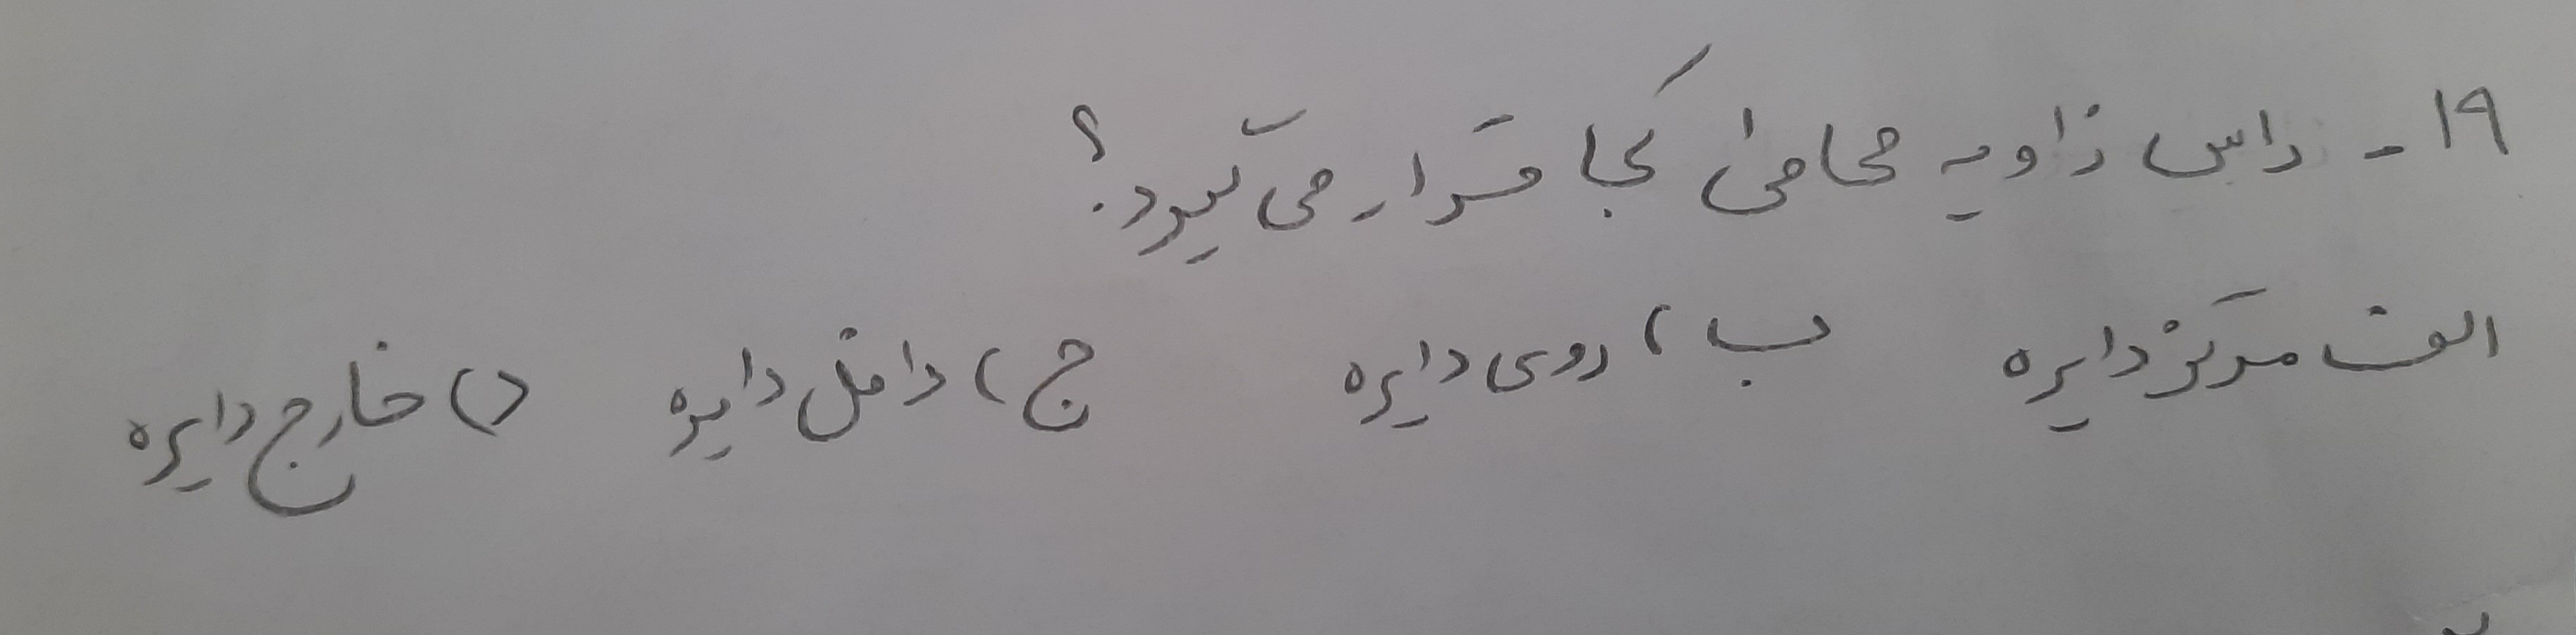 ۱۹- راس زاویه محاطی کجا قرار می گیرد؟
الف مرکز دایره ب) روی دایره ج) داخل دایره د) خارج دایره